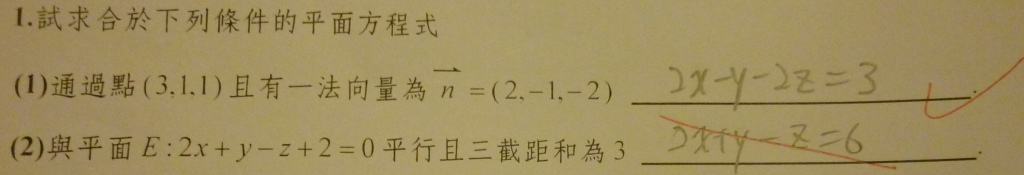 1.試求合於下列條件的平面方程式
(1)通過點(3,1,1)且有一法向量為 n⃗ =(2,-1,-2) 2x-y-2z=3
(2)與平面E:2x+y-z+2=0平行且三截距和為3 2x+y-z=6